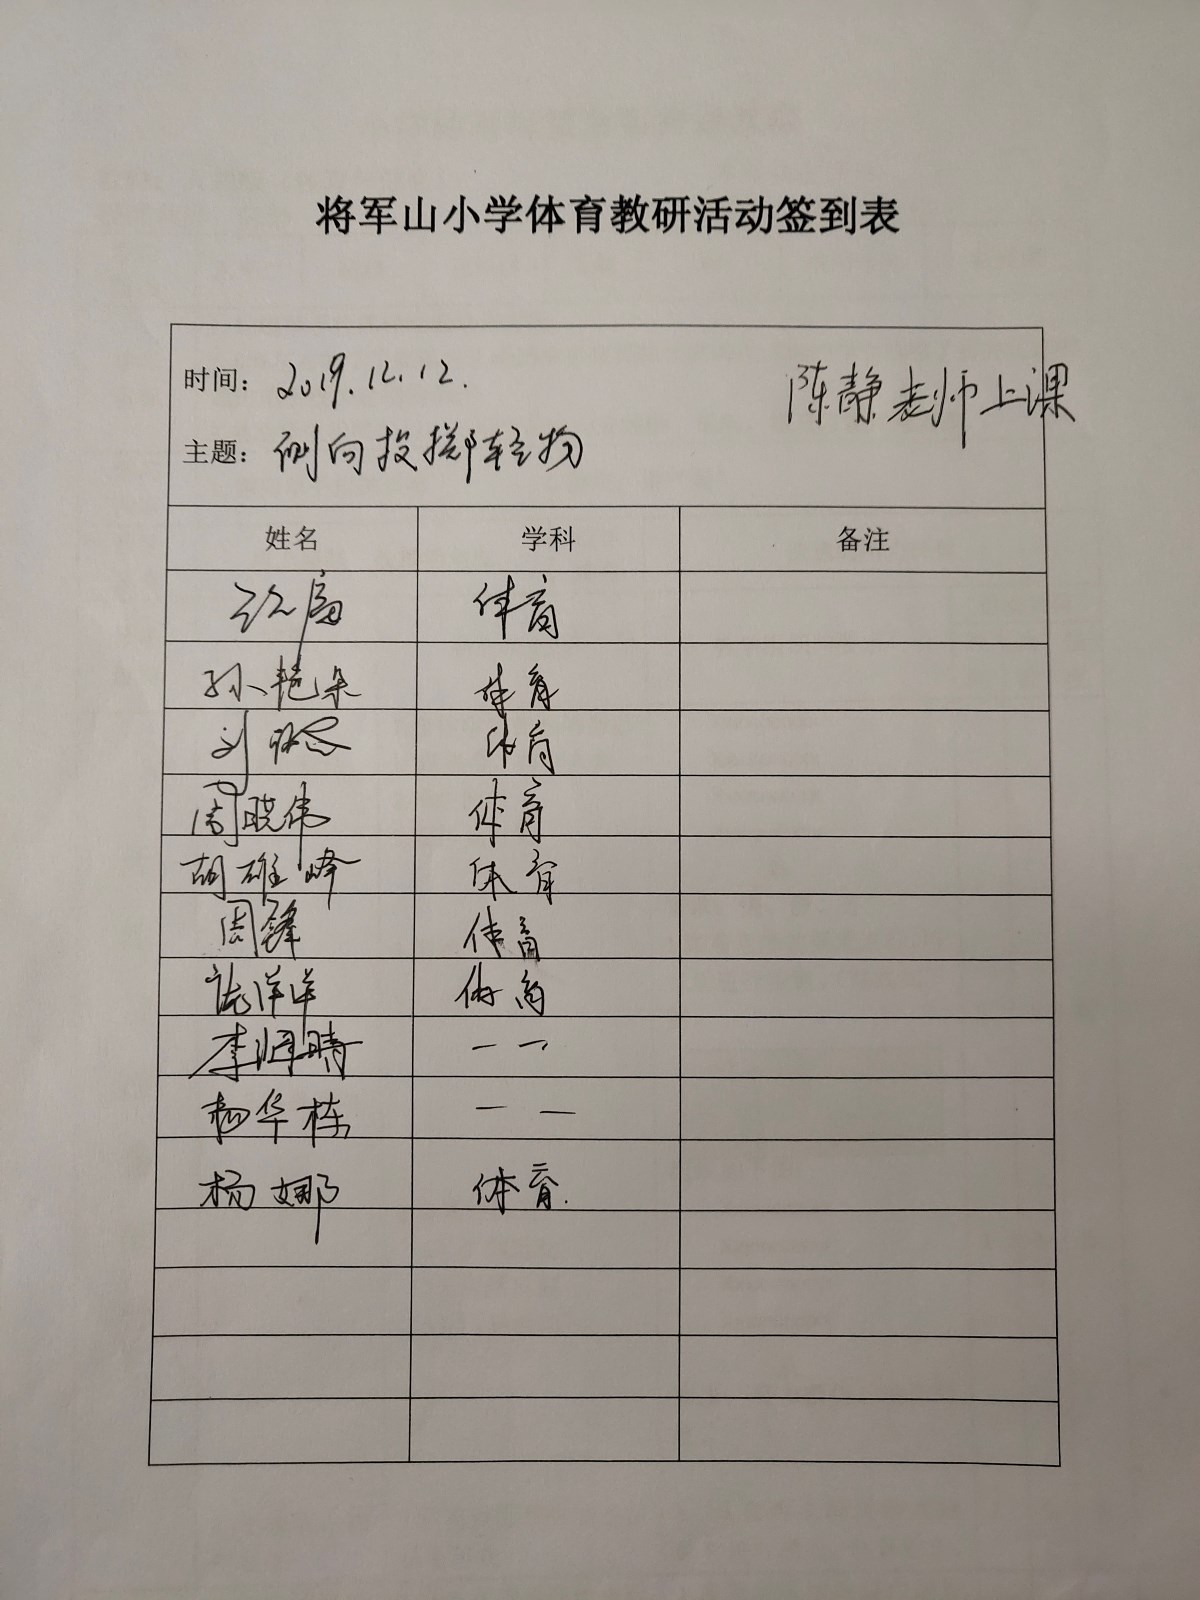 将军山小学体育教研活动签到表
时间: 2019.12.12.
陈静老师上课
主题: 侧向投掷轻物
姓名 学科 备注
体育
孙艳朵 体育
刘 体育
周晓伟 体育
胡雄峰 体育
周锋 体育
洋洋 体育
李 晴 一一
杨华栋 一一
杨娜 体育.